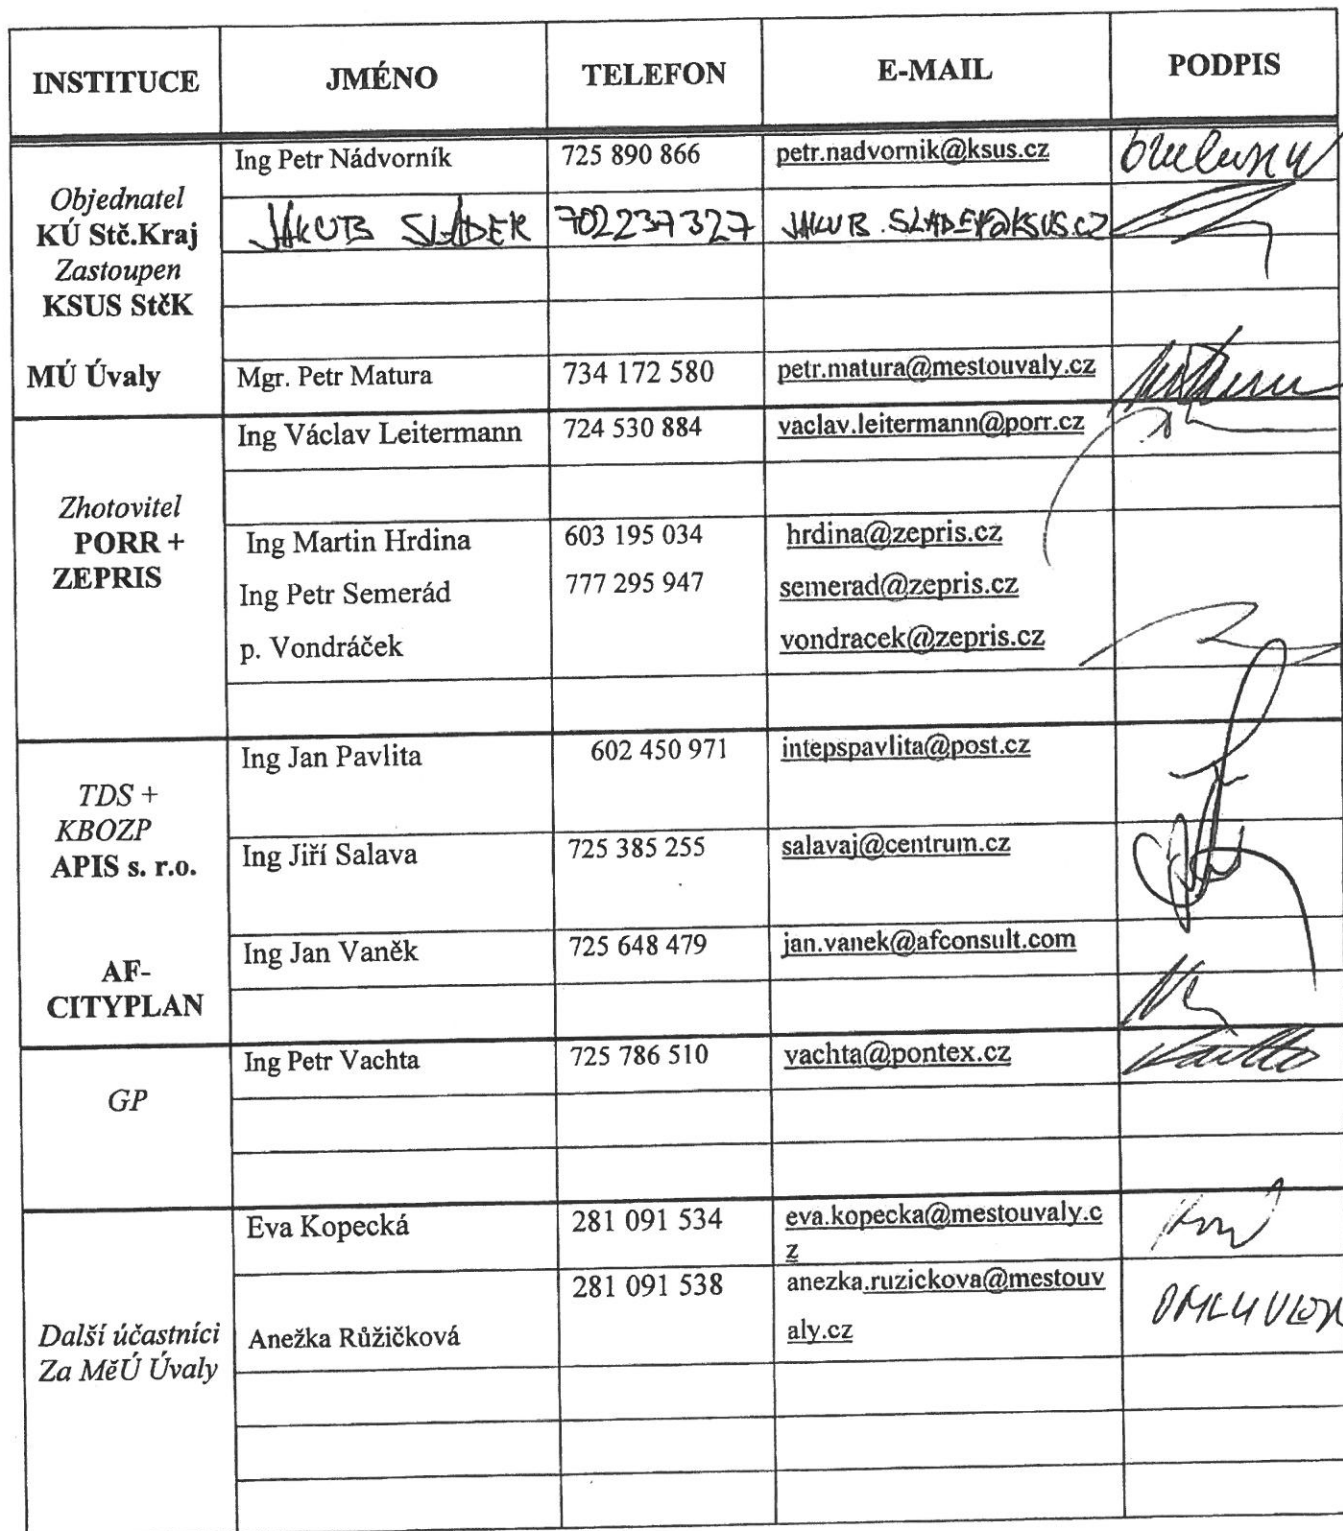 INSTITUCE JMÉNO TELEFON E-MAIL PODPIS
Objednatel
KÚ Stč.Kraj
Zastoupen
KSUS StčK
Ing Petr Nádvorník 725 890 866 petr.nadvornik@ksus.cz
JAKUB SLÁDEK 702237327 JAKUB.SLADEK@KSUS.CZ
MÚ Úvaly Mgr. Petr Matura 734 172 580 petr.matura@mestouvaly.cz
Zhotovitel
PORR +
ZEPRIS
Ing Václav Leitermann 724 530 884 vaclav.leitermann@porr.cz
Ing Martin Hrdina 603 195 034 hrdina@zepris.cz
Ing Petr Semerád 777 295 947 semerad@zepris.cz
p. Vondráček vondracek@zepris.cz
TDS +
KBOZP
APIS s. r.o.
Ing Jan Pavlita 602 450 971 intepspavlita@post.cz
Ing Jiří Salava 725 385 255 salavaj@centrum.cz
AF-
CITYPLAN
Ing Jan Vaněk 725 648 479 jan.vanek@afconsult.com
GP
Ing Petr Vachta 725 786 510 vachta@pontex.cz
Další účastníci
Za MěÚ Úvaly
Eva Kopecká 281 091 534 eva.kopecka@mestouvaly.c
z
281 091 538 anezka.ruzickova@mestouv
Anežka Růžičková aly.cz